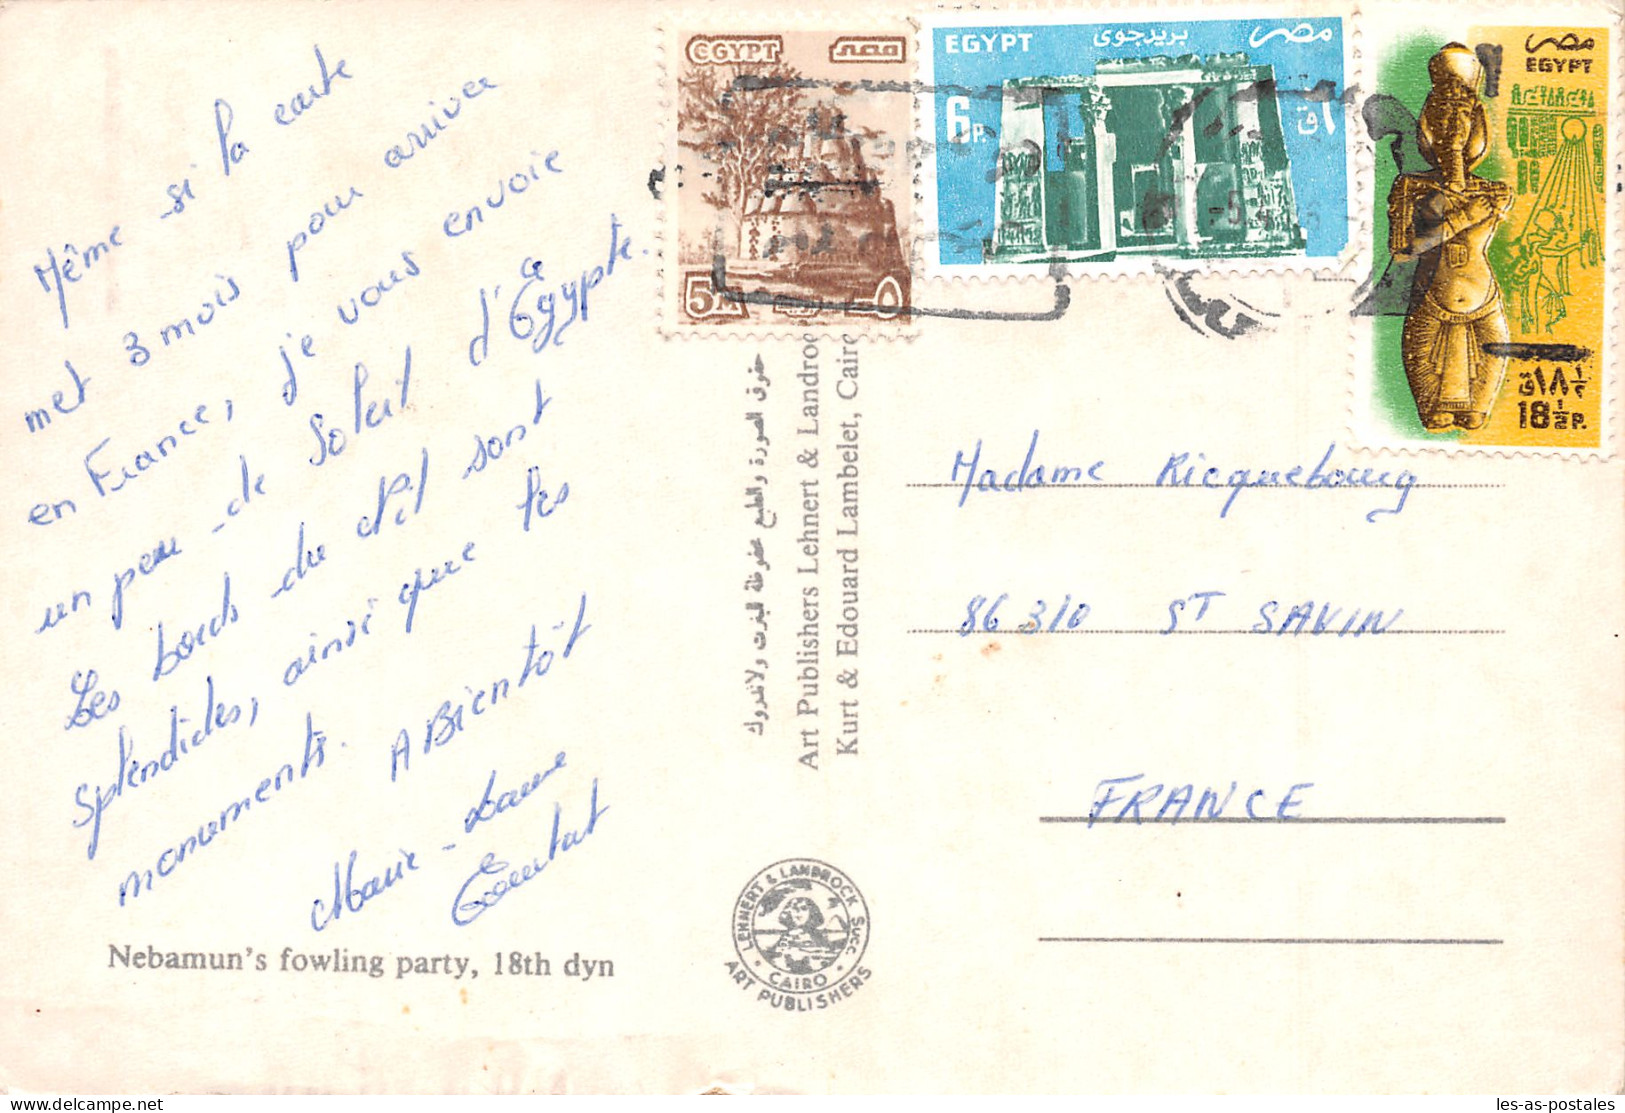 Même si la carte
met 3 mois pour arriver
en France, je vous envoie
un peu de Soleil d'Egypte.
Les bords du Nil sont
splendides, ainsi que les
monuments. A Bientôt
Marie-Laure
Nebamun's fowling party, 18th dyn
EGYPT
مصر
5M
٥
EGYPT
بريد جوى
مصر
6P.
٦ق
مصر
EGYPT
١٨ ١/٢ق
18 1/2P.
حقوق الصورة والطبع محفوظة للينرت ولاندروك
Art Publishers Lehnert & Landroc
Kurt & Edouard Lambelet, Cairo
LEHNERT & LANDROCK SUCC.
CAIRO
ART PUBLISHERS
Madame Ricquebourg
86310 ST SAVIN
FRANCE
les-as-postales
delcampe.net